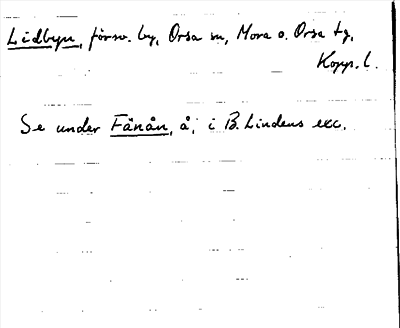 Lidbyn, försv. by, Orsa sn, Mora o. Orsa tg,
Kopp. l.
Se under Fänån, å, i B. Lindens exc.